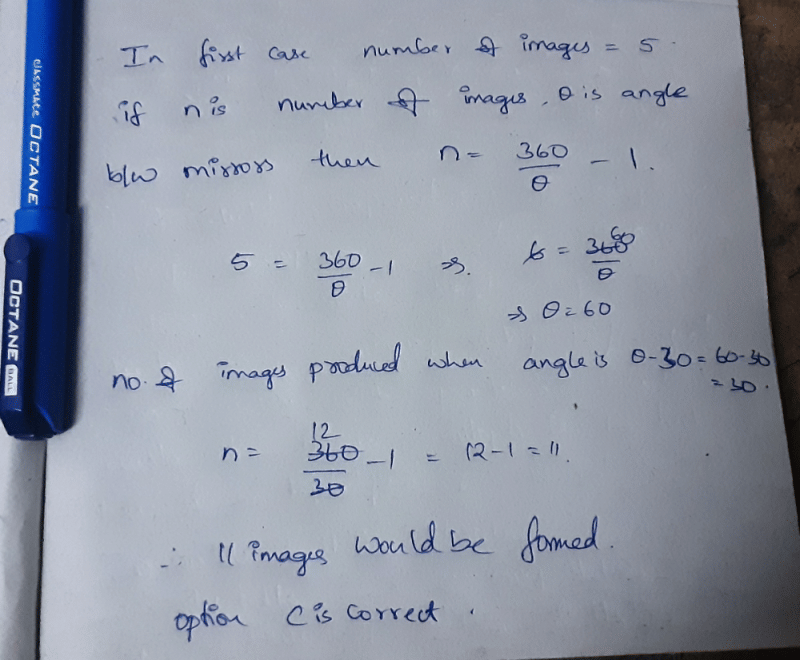 classmate OCTANE
OCTANE BALL
In first case number of images = 5.
if n is number of images, θ is angle
b/w mirrors then n = 360/θ - 1.
5 = 360/θ - 1 ⇒ 6 = 360/θ 60
⇒ θ = 60
no. of images produced when angle is θ-30 = 60-30
= 30.
12
n = 360/30 - 1 = 12-1 = 11.
∴ 11 images would be formed.
option C is correct.